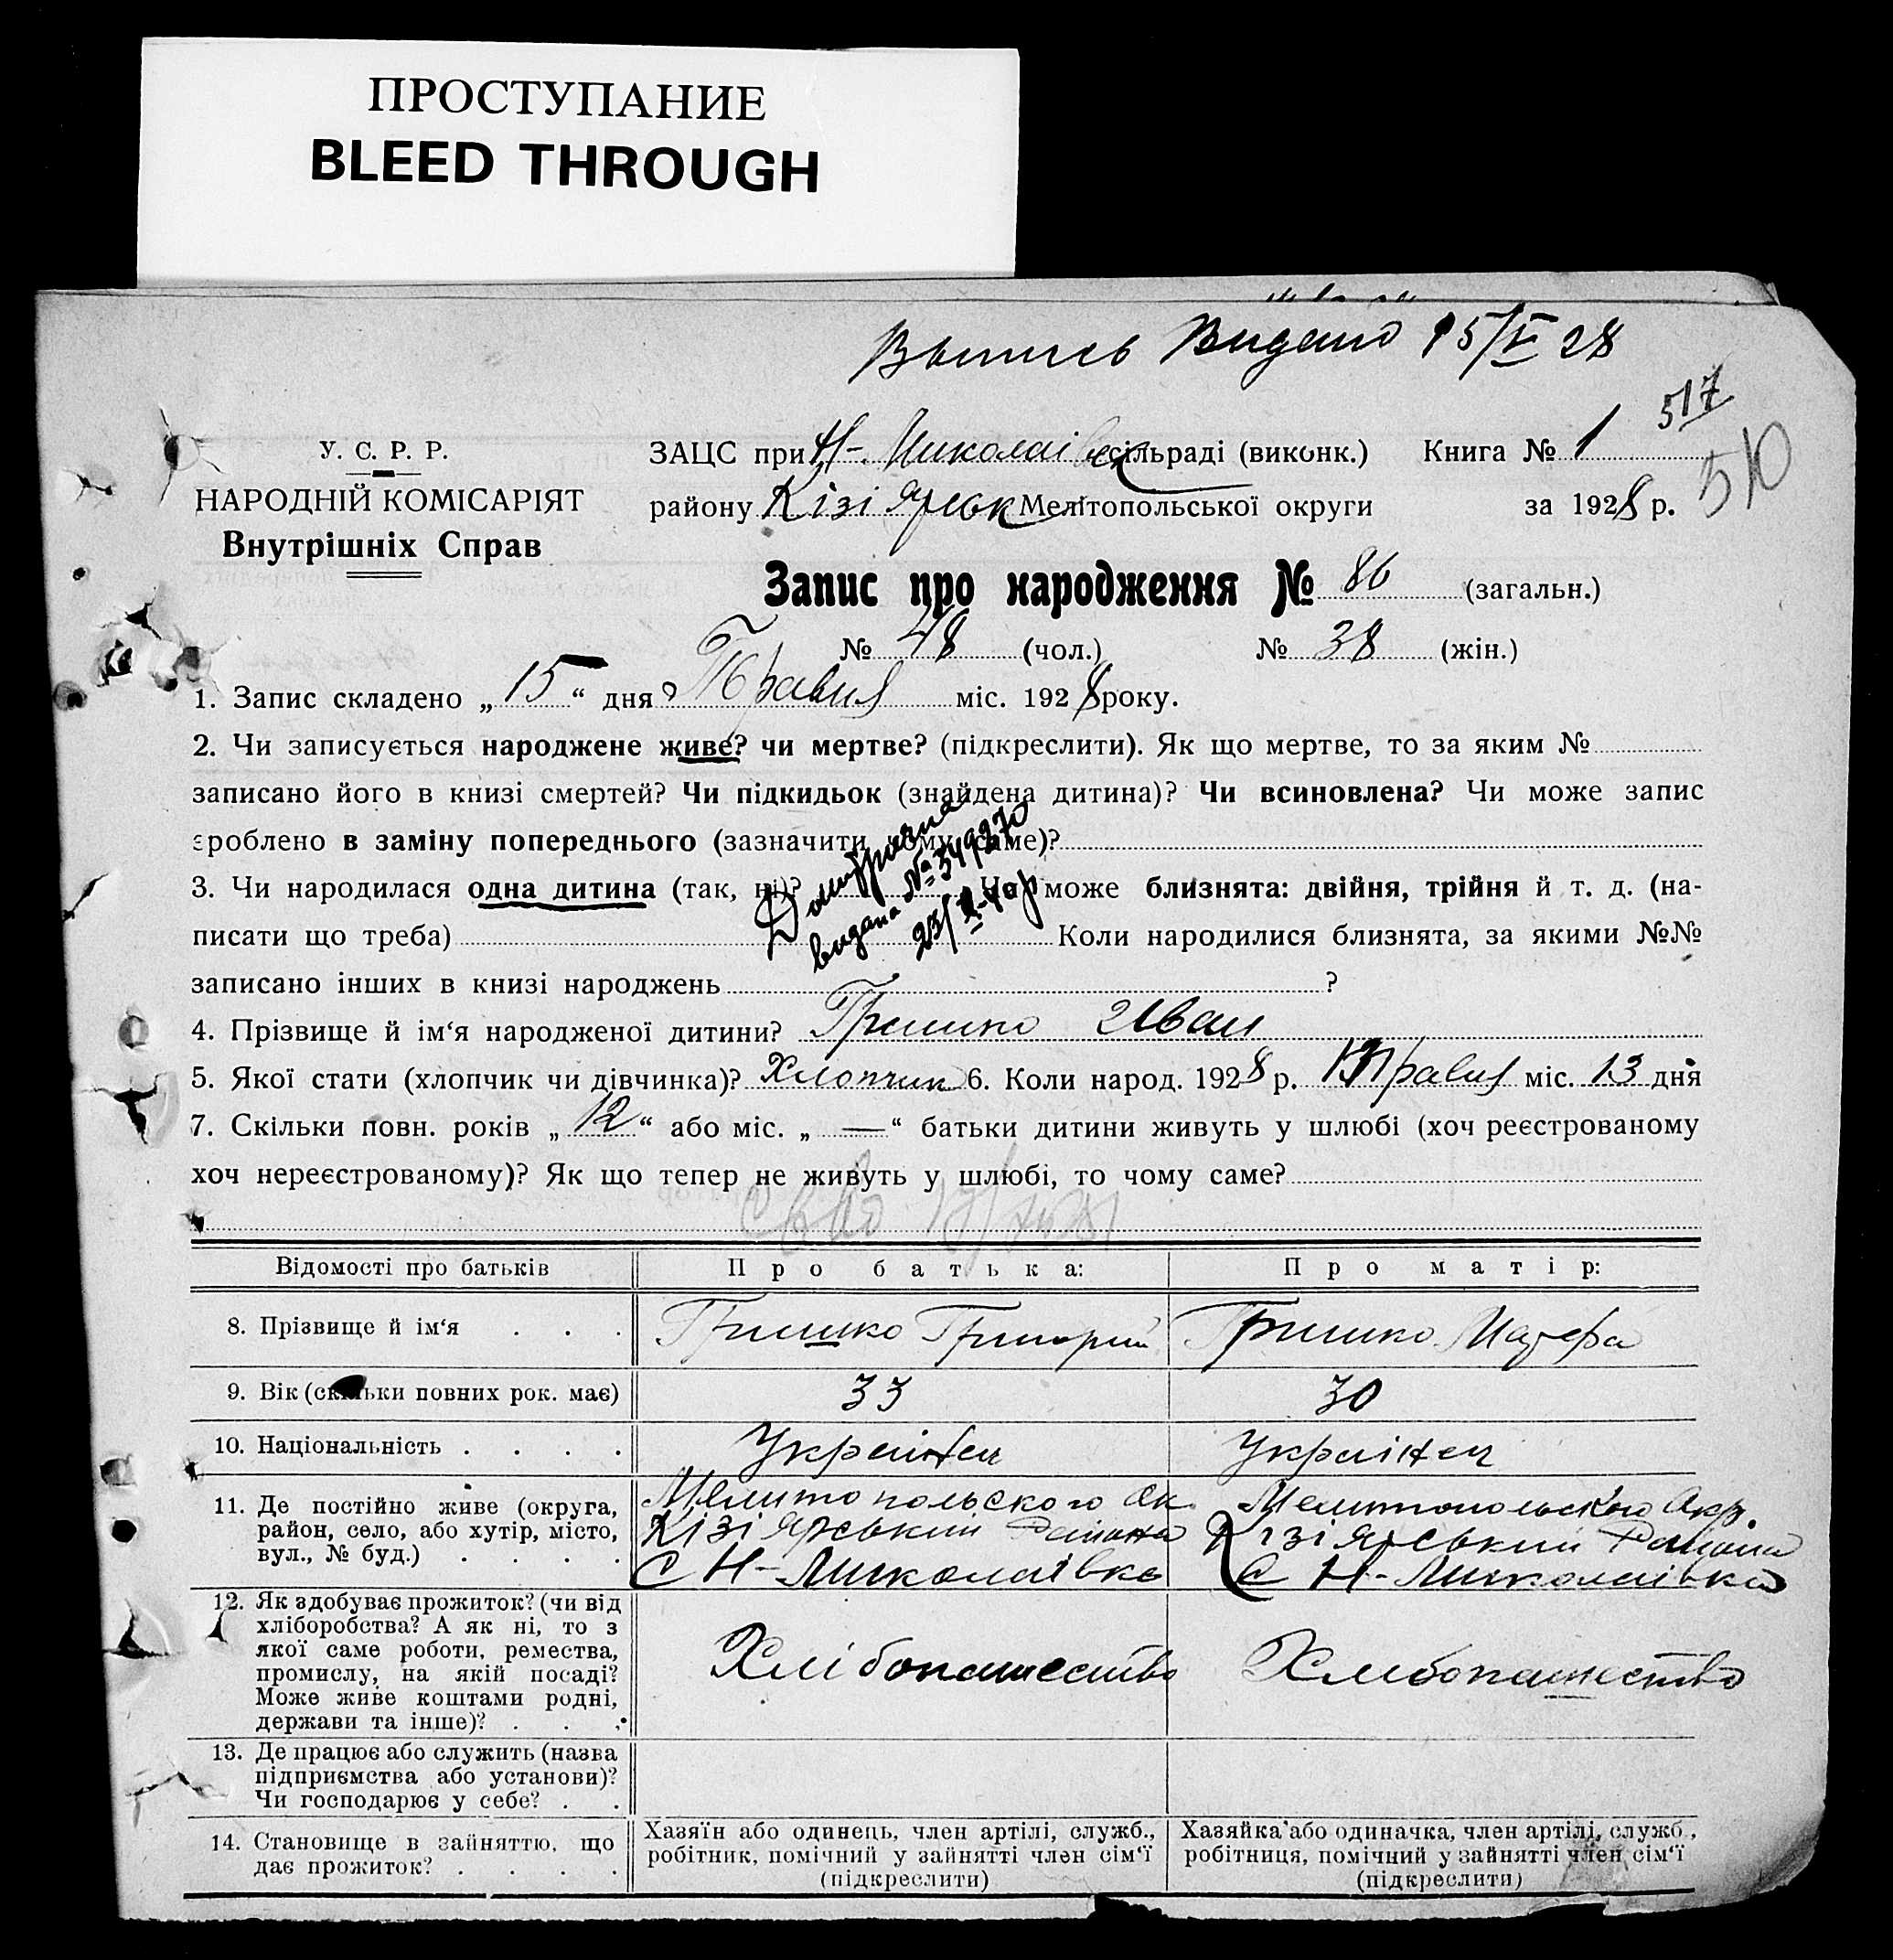 ПРОСТУПАНИЕ
BLEED THROUGH
Выпись Видано 15/V 28
517
510
У. С. Р. Р.
НАРОДНІЙ КОМІСАРІЯТ
Внутрішніх Справ
ЗАЦС при Н-Николаівск сільраді (виконк.) Книга № 1
району Кізіярськ Мелітопольської округи за 1928 р.
Запис про народження № 86 (загальн.)
№ 48 (чол.) № 38 (жін.)
1. Запис складено „15“ дня Травня міс. 1928 року.
2. Чи записується народжене живе? чи мертве? (підкреслити). Як що мертве, то за яким №
записано його в книзі смертей? Чи підкидьок (знайдена дитина)? Чи всиновлена? Чи може запис
зроблено в заміну попереднього (зазначити, чому саме)?
3. Чи народилася одна дитина (так, ні)? Чи може близнята: двійня, трійня й т. д. (на-
писати що треба) Коли народилися близнята, за якими №№
записано інших в книзі народжень ?
видана № 349270
4. Прізвище й ім‘я народженої дитини? Гришко Иван
5. Якої стати (хлопчик чи дівчинка)? Хлопчик 6. Коли народ. 1928 р. Травня міс. 13 дня
7. Скільки повн. років „12“ або міс. „—“ батьки дитини живуть у шлюбі (хоч реєстрованому
хоч нереєстрованому)? Як що тепер не живуть у шлюбі, то чому саме?
Відомості про батьків Про батька: Про матір:
8. Прізвище й ім‘я . . . Гришко Григорий Гришко
9. Вік (скільки повних рок. має) 33 30
10. Національність . . . . Украінец Украінец
11. Де постійно живе (округа, Мелитопольского Ок. Мелитопольского Окр.
район, село, або хутір, місто, Кізіярський Района Кізіярський Района
вул., № буд.) . . . . С Н-Николаівка С Н-Николаівка
12. Як здобуває прожиток? (чи від
хліборобства? А як ні, то з
якої саме роботи, ремества, Хлібопашество Хлибопашество
промислу, на якій посаді?
Може живе коштами родні,
держави та інше)? . . .
13. Де працює або служить (назва
підприємства або установи)?
Чи господарює у себе? . .
14. Становище в зайняттю, що Хазяїн або одинець, член артілі, служб., Хазяйка або одиначка, член артілі, служб.,
дає прожиток? . . . . робітник, помічний у зайнятті член сім‘ї робітниця, помічний у зайнятті член сім‘ї
(підкреслити) (підкреслити)